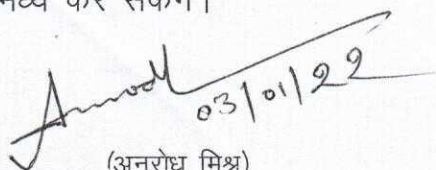 कर सकेंगे।
03/01/22
(अनरोध मिश्र)